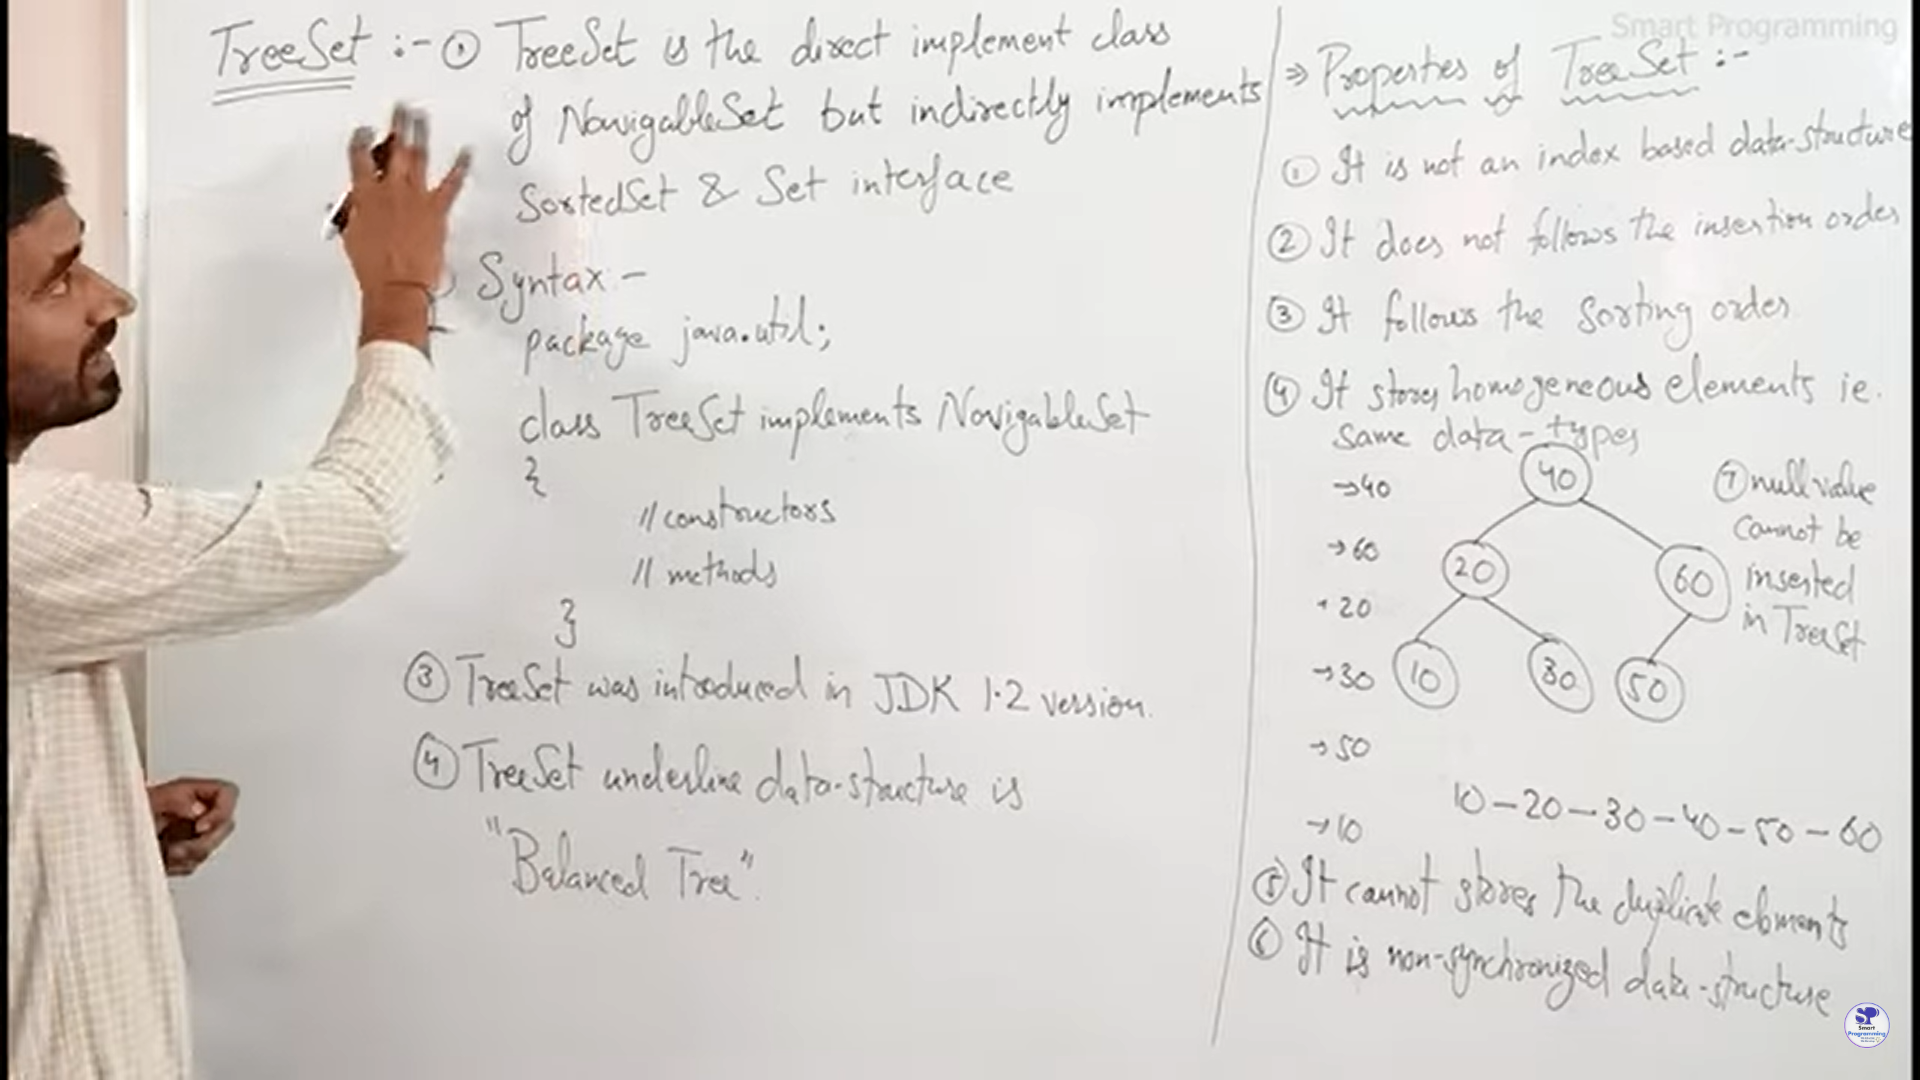 TreeSet :- ① TreeSet is the direct implement class
of NavigableSet but indirectly implements
SortedSet & Set interface
Syntax -
package java.util;
class TreeSet implements NavigableSet
{
// constructors
// methods
}
③ TreeSet was introduced in JDK 1.2 version.
④ TreeSet underline data-structure is
"Balanced Tree".
Smart Programming
⇒ Properties of TreeSet :-
① It is not an index based data-structure
② It does not follows the insertion order
③ It follows the Sorting order
④ It stores homogeneous elements ie.
same data-types
→40
→60
→20
→30
→50
→10
40
20 60
10 30 50
⑦ null value
cannot be
inserted
in TreeSet
10-20-30-40-50-60
⑤ It cannot stores the duplicate elements
⑥ It is non-synchronized data-structure
SP
Smart
Programming